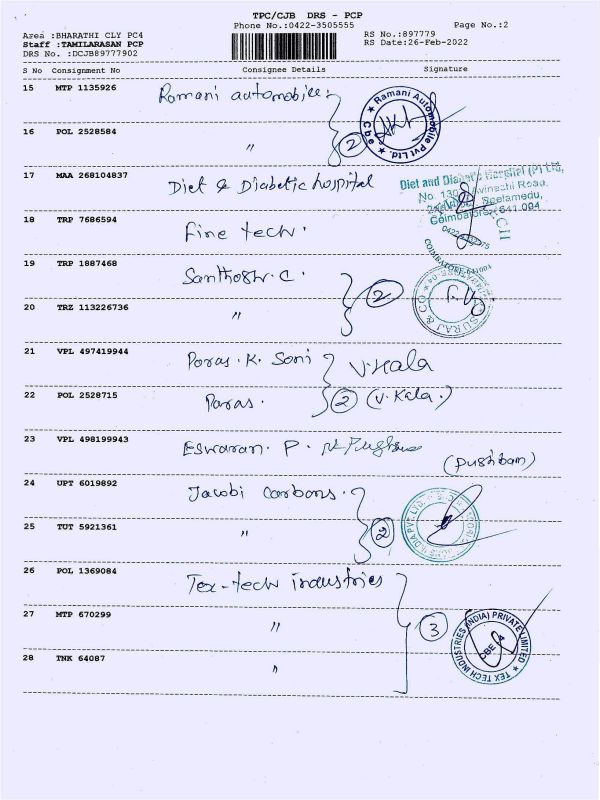 TPC/CJB DRS - PCP
Phone No.:0422-3505555 Page No.:2
Area :BHARATHI CLY PC4
Staff :TAMILARASAN PCP
DRS No. :DCJB89777902
RS No.:897779
RS Date:26-Feb-2022
S No Consignment No Consignee Details Signature
15 MTP 1135926 Ramani automobile.
Ramani Automobile Pvt Ltd. Cbe
16 POL 2528584 " 2
17 MAA 268104837 Diet & Diabetic hospital
Diet and Diabetic Hospital (P) Ltd,
No. 130, Avinashi Road,
Peelamedu,
Coimbatore - 641 004
18 TRP 7686594 Fine tech.
COIMBATORE-641004
19 TRP 1887468 Santhosh. C. 2
SURAJ & CO
20 TRZ 113226736 "
21 VPL 497419944 Poras. K. Soni V.Kala
22 POL 2528715 Paras. 2 (V. Kala.)
23 VPL 498199943 Eswaran. P.
(Pushbam)
24 UPT 6019892 Jacobi Carbons.
25 TUT 5921361 " 2
26 POL 1369084 Tex-tech industries
27 MTP 670299 " 3
TEX TECH INDUSTRIES (INDIA) PRIVATE LIMITED
CBE-4
28 TNK 64087 "